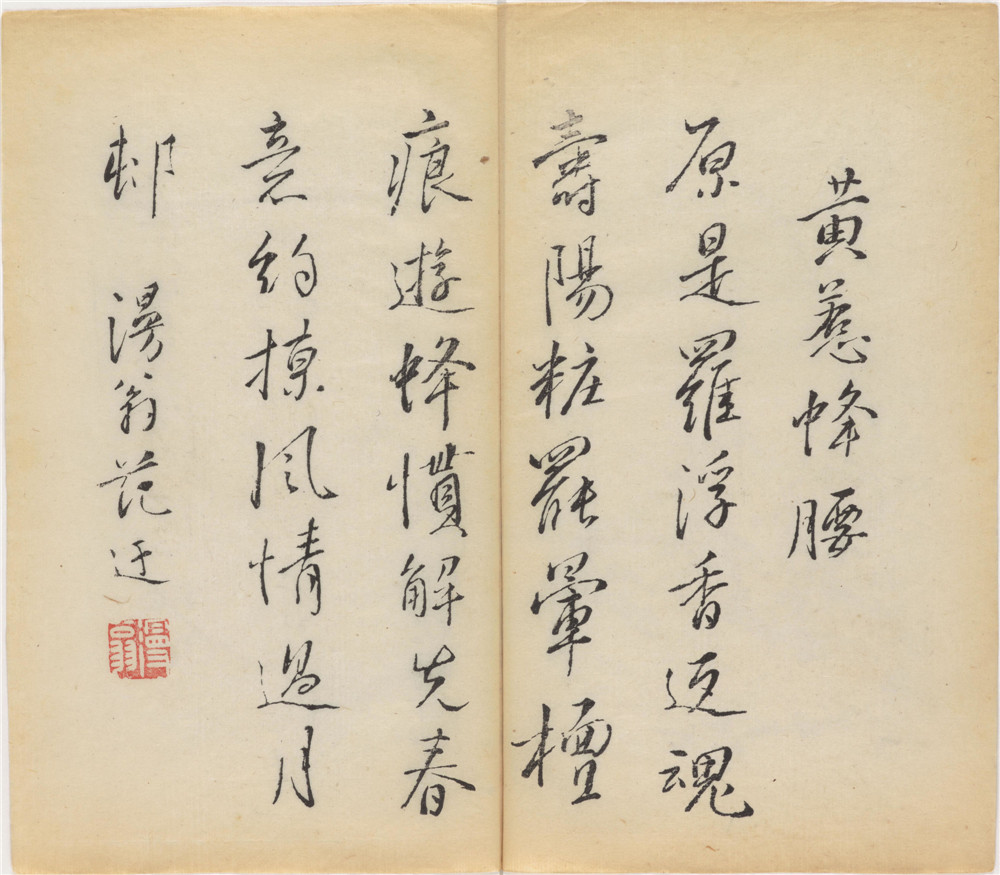 黃惹蜂腰
原是羅浮香返魂
壽陽粧罷暈檀
痕遊蜂慣解先春
意約採風情過月
邨 漫翁范迂
漫翁